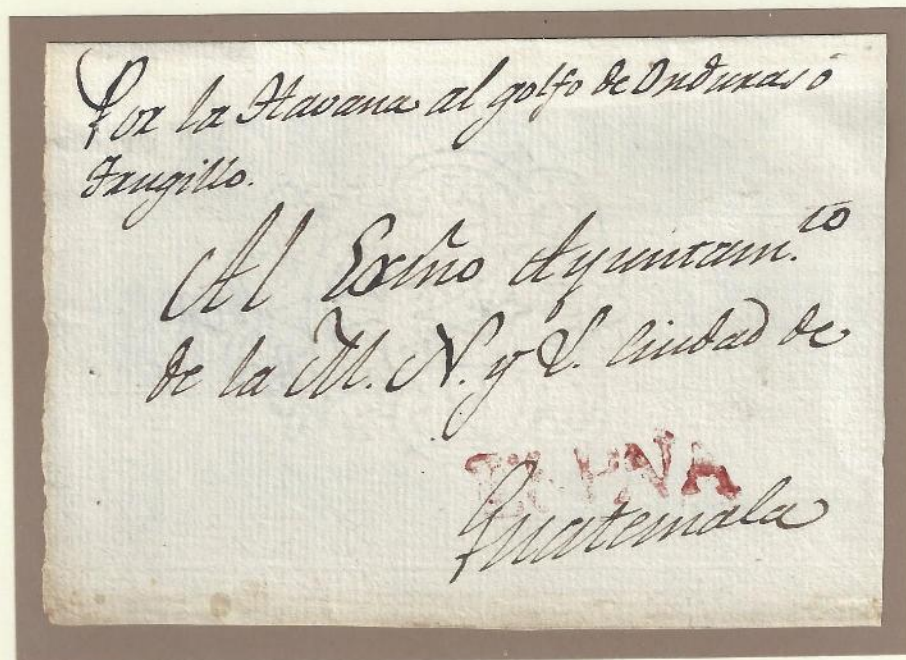 Por la Havana al golfo de Onduras ó
Trugillo.
Al Exm̃o Ayuntam.to
de la M. N. y L. Ciudad de
Guatemala